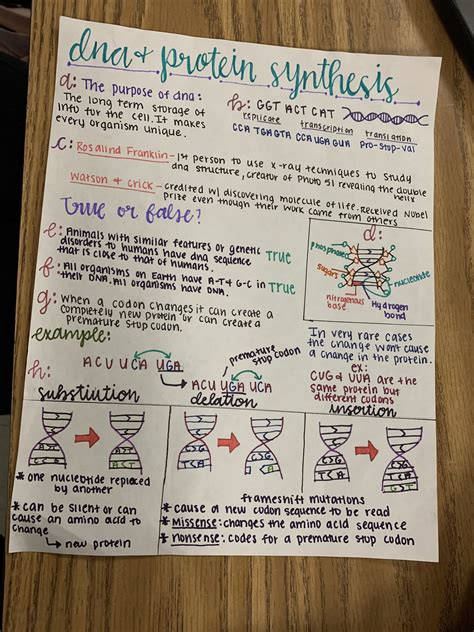 dna + protein synthesis
a: The purpose of dna:
The long term storage of
info for the cell. It makes
every organism unique.
b: GGT ACT CAT
replicate transcription translation
CCA TGA GTA CCA UGA GUA Pro-Stop-Val
c: Rosalind Franklin - 1st person to use x-ray techniques to study
dna structure, creator of Photo 51 revealing the double
helix
Watson + Crick - credited w/ discovering molecule of life. Received Nobel
Prize even though their work came from others
True or false?
e: Animals with similar features or genetic
disorders to humans have dna sequence
that is close to that of humans. True
f: All organisms on Earth have A-T & G-C in
their DNA. All organisms have DNA. True
g: When a codon changes it can create a
completely new protein or can create a
premature stop codon.
d:
phosphate
sugar
nucleotide
nitrogenous
base
Hydrogen
bond
example:
premature
stop codon
h: ACU UCA UGA
ACU UGA UCA
In very rare cases
the change wont cause
a change in the protein.
ex:
CUG & UUA are the
same protein but
different codons
substiution
delation
insertion
* one nucleotide replaced
by another
* can be silent or can
cause an amino acid to
change
new protein
frameshift mutations
* cause a new codon sequence to be read
* missense: changes the amino acid sequence
* nonsense: codes for a premature stop codon